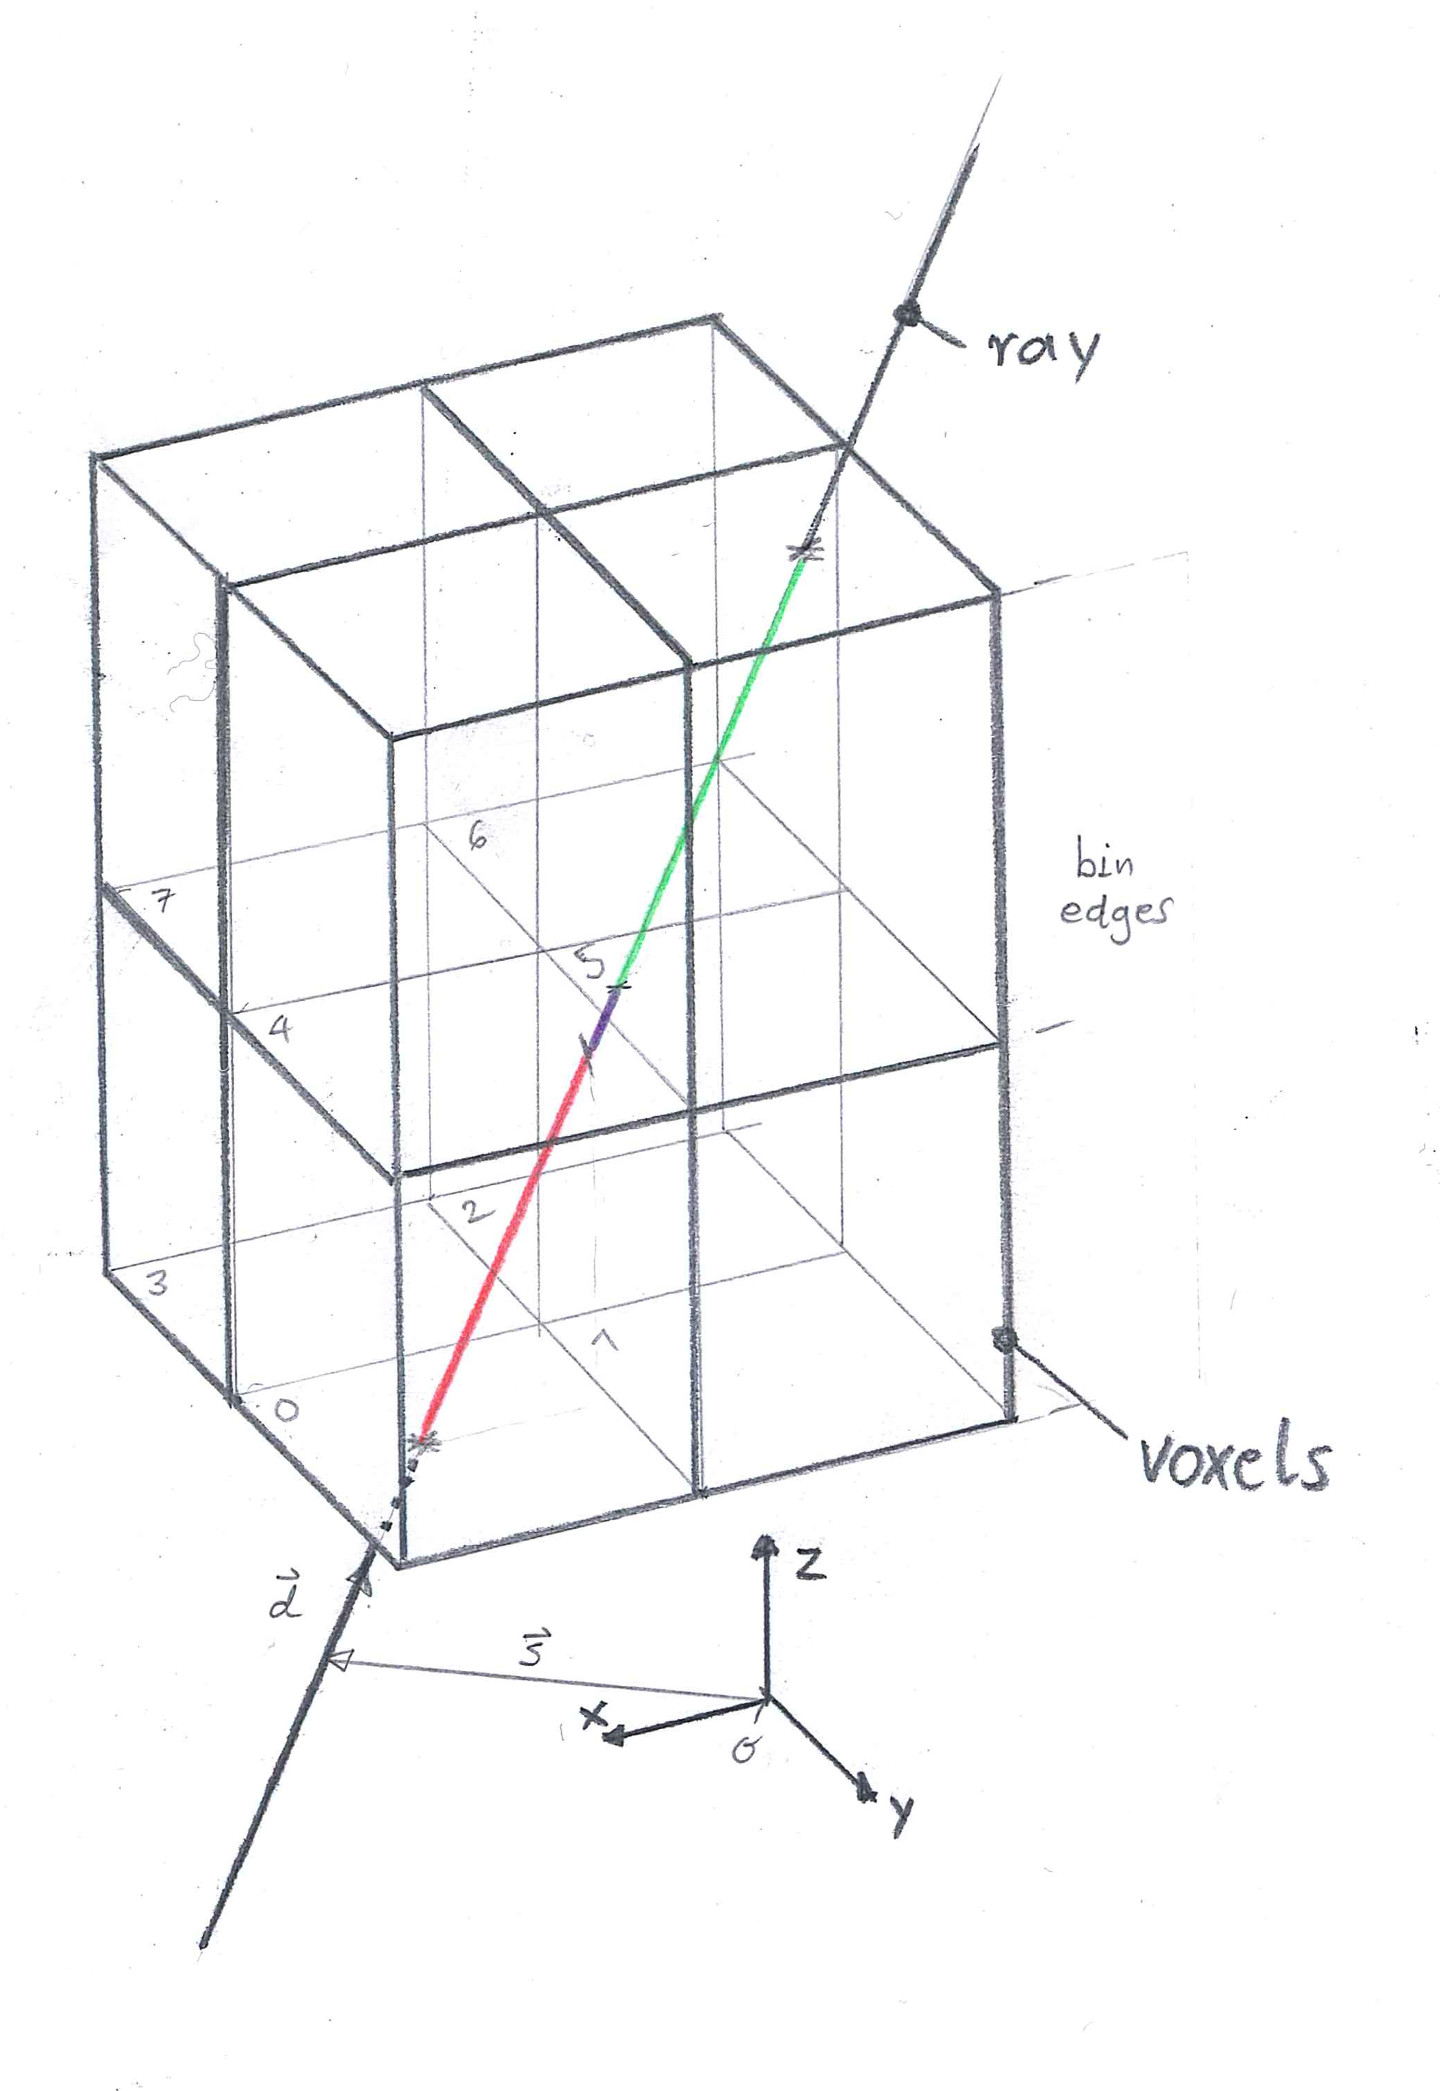 ray
6
7
bin
edges
5
4
2
3
1
0
voxels
z
d
s
x
O
y